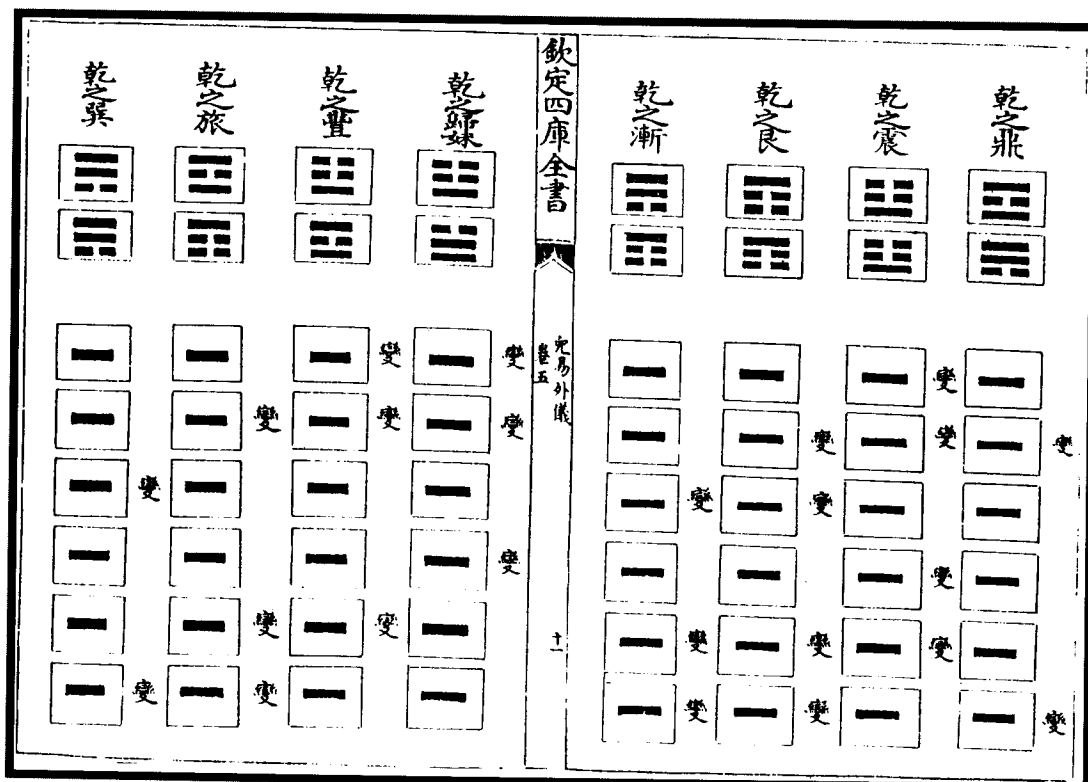 乾之鼎
變
變
乾之震
變
變
變
變
乾之艮
變
變
變
變
乾之漸
變
變
變
欽定四庫全書
兒易外儀
卷五
十一
乾之歸妹
變
變
變
乾之豐
變
變
變
乾之旅
變
變
變
乾之巽
變
變